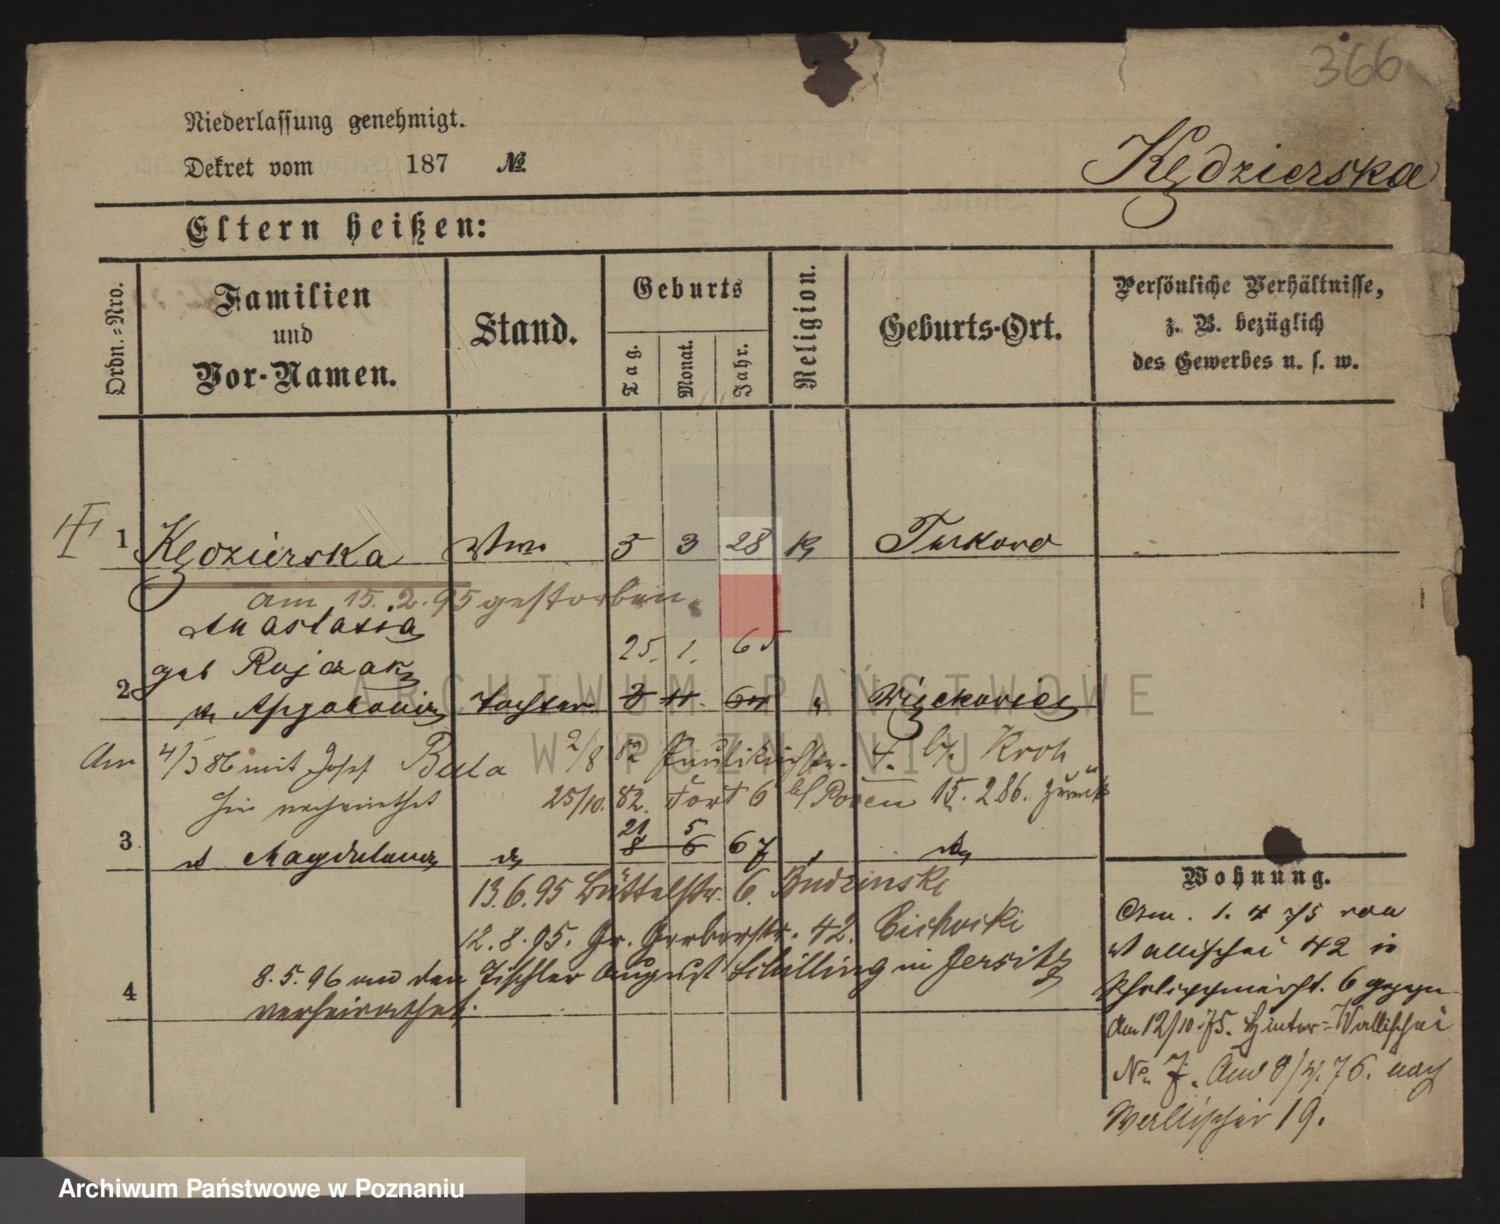 366
Niederlassung genehmigt.
Dekret vom 187 №
Kędzierska
Eltern heißen:
Ordn.-Nro.
Familien und Vor-Namen.
Stand.
Geburts
Tag.
Monat.
Jahr.
Religion.
Geburts-Ort.
Persönliche Verhältnisse, z. B. bezüglich des Gewerbes u. s. w.
1 Kędzierska Wwe 5 3 28 k Turkowo
am 15.2.95 gestorben.
Anastasia
25. 1. 65
geb Rajczak
2 Apolonia Tochter 3 11. 64 " Więckowice
Am 4/3 86 mit Josef Bula 2/8 82 Paulikirchstr. 4. b/. Kroh
hier verheirathet 25/10. 82. Fort 6 b/ Posen 15.2 86. zurück
21 5
3 d Magdalena d 8 6 67 " d
13.6.95 Büttelstr. 6. Budzinski
12.8.95. Gr. Gerberstr. 42. Cichocki
8.5.96 mit dem Tischler August Schilling in Jersitz
4 verheirathet.
Wohnung.
1. 4 75 von
Wallischei 42 in
6 gezogen
Am 12/10.75. Hinter-Wallischei
No. 7. Am 8/4.76. nach
Wallischei 19.
ARCHIWUM PAŃSTWOWE
W POZNANIU
Archiwum Państwowe w Poznaniu